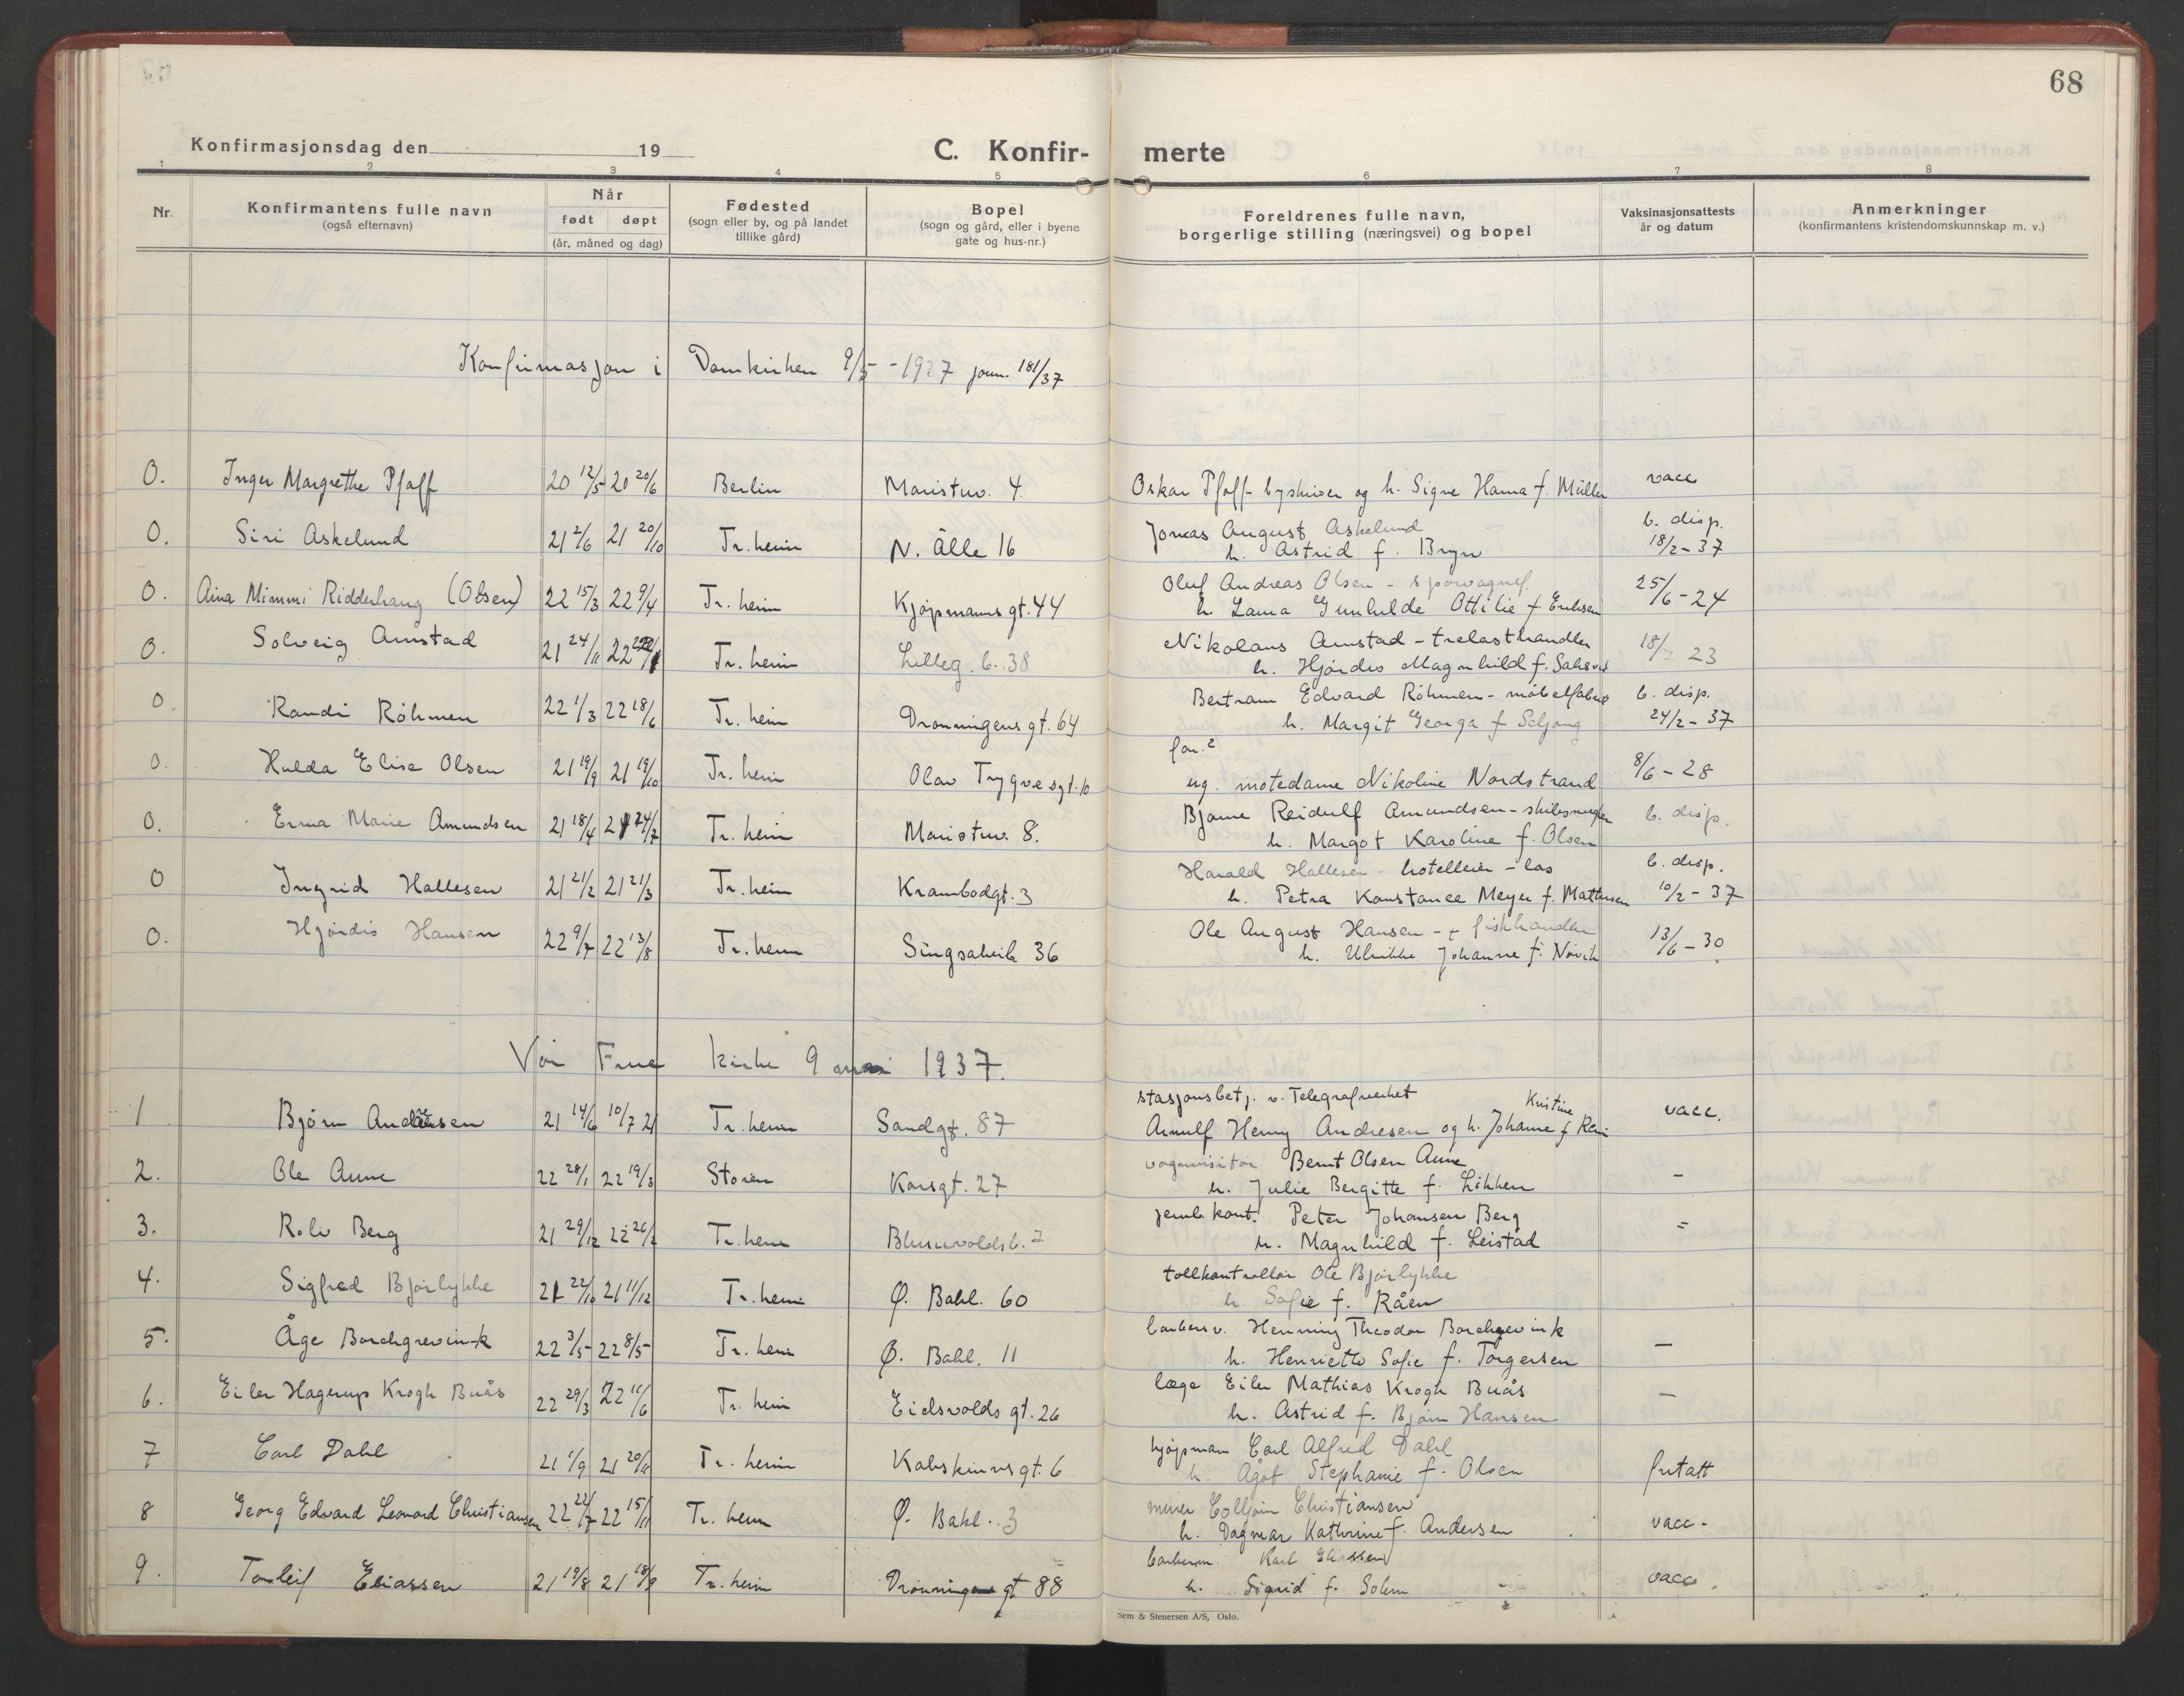 68
Konfirmasjonsdag den 19
C. Konfir- merte
1 2 3 4 5 6 7 8
Nr.
Konfirmantens fulle navn
(også efternavn)
Når
født døpt
(år, måned og dag)
Fødested
(sogn eller by, og på landet
tillike gård)
Bopel
(sogn og gård, eller i byene
gate og hus-nr.)
Foreldrenes fulle navn,
borgerlige stilling (næringsvei) og bopel
Vaksinasjonsattests
år og datum
Anmerkninger
(konfirmantens kristendomskunnskap m. v.)
Konfirmasjon i Domkirken 9/5 - 1937 journ. 181/37
O. Inger Margrethe Pfaff 20 12/5 20 20/6 Berlin Maristuv. 4. Oskar Pfaff - byskriver og h. Signe Hanna f. Müller vacc
O. Siri Askelund 21 2/6 21 20/10 Tr.heim N. Alle 16 Jonas August Askelund b. disp.
h. Astrid f. Bryn 18/2 - 37
O. Aina Mimmi Ridderhaug (Olsen) 22 15/3 22 9/4 Tr.heim Kjøpmannsgt. 44 Oluf Andreas Olsen - sporvognsf. 25/6 - 24
h. Laura Gunhilde Ottilie f. Eriksen
O. Solveig Arnstad 21 24/11 22 Tr.heim Lilleg. b. 38 Nikolaus Arnstad - trelasthandler 18/ 23
h. Hjørdis Magnhild f.
O. Randi Röhmen 22 1/3 22 18/6 Tr.heim Dronningens gt. 64 Bertram Edvard Röhmen - møbelfabrik b. disp.
h. Margit Georga f. Seljong 24/2 - 37
O. Hulda Elise Olsen 21 19/9 21 19/10 Tr.heim Olav Trygves gt. 10 far: ?
ug. motedame Nikoline Nordstrand 8/6 - 28
O. Erna Marie Amundsen 21 18/4 21 24/7 Tr.heim Maristuv. 8. Bjarne Reidulf Amundsen - skibsmegler b. disp.
h. Margot Karoline f. Olsen
O Ingrid Hallesen 21 21/2 21 21/3 Tr.heim Krambodgt. 3 Harald Hallesen - hotelleier - b. disp.
h. Petra Konstance Meyer f. Mathisen 10/2 - 37
O. Hjørdis Hansen 22 9/7 22 13/8 Tr.heim Singsakerb. 36 Ole August Hansen - fiskhandler 13/6 - 30
h. Ulrikke Johanne f. Novik
Vår Frue kirke 9 mai 1937.
stasjonsbetj. v. Telegrafverket
1 Bjørn Andresen 21 14/6 10/7 21 Tr.heim Sandgt. 87 Arnulf Henry Andresen og h. Johanne Kristine f. vacc.
2. Ole Aune 22 28/1 22 19/3 Støren Korsgt. 27 vognvisitør Bernt Olsen Aune -
h. Julie Bergitte f. Likken
3. Rolv Berg 21 29/12 22 26/2 Tr.heim 7 jernb. kont. Peter Johansen Berg =
h. Magnhild f. Leistad
4. Sigfred Bjørlykke 21 22/10 21 11/12 Tr.heim Ø. Bakl. 60 tollkontrollør Ole Bjørlykke
h. Sofie f. Råen
5. Åge Borchgrevink 22 3/5 22 8/5 Tr.heim Ø. Bakl. 11 Henning Theodor Borchgrevink -
h. Henriette Sofie f. Torgersen
6. Eiler Hagerup Krogh Buås 22 29/3 22 11/6 Tr.heim Eidsvolds gt. 26 læge Eiler Mathias Krogh Buås -
h. Astrid f. Bjørn Hansen
7 Carl Dahl 21 1/9 21 20/11 Tr.heim Kalvskinnsgt. 6 kjøpman Carl Alfred Dahl
h. Ågot Stephanie f. Olsen fritatt
8 Georg Edvard Leonard Christiansen 22 22/7 22 15/11 Tr.heim Ø. Bakl. 3 murer Colbjørn Christiansen
h. Dagmar Kathrine f. Andersen vacc.
9. Torleif Eliassen 21 19/8 21 18/9 Tr.heim Dronningens gt 88 Karl Eliassen
h. Sigrid f. Solem vacc.
Sem & Stenersen A/S, Oslo.